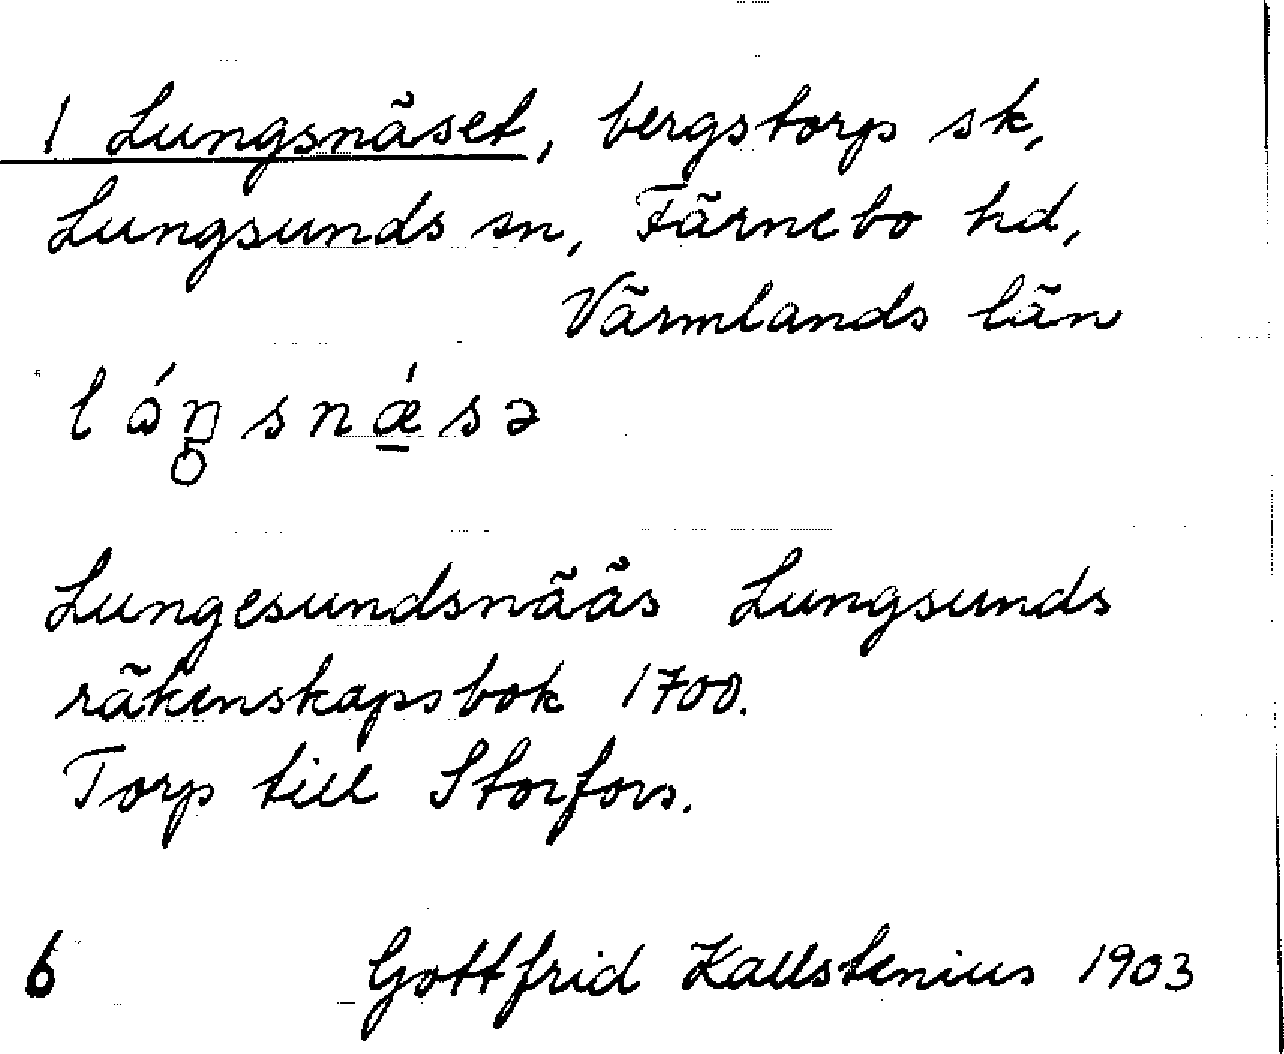 1 Lungsnäset, bergstorp sk,
Lungsunds sn, Färnebo hd,
Värmlands län
lóŋsnǽ̱sə
Lungesundsnääs Lungsunds
räkenskapsbok 1700.
Torp till Storfors.
6 Gottfrid Kallstenius 1903